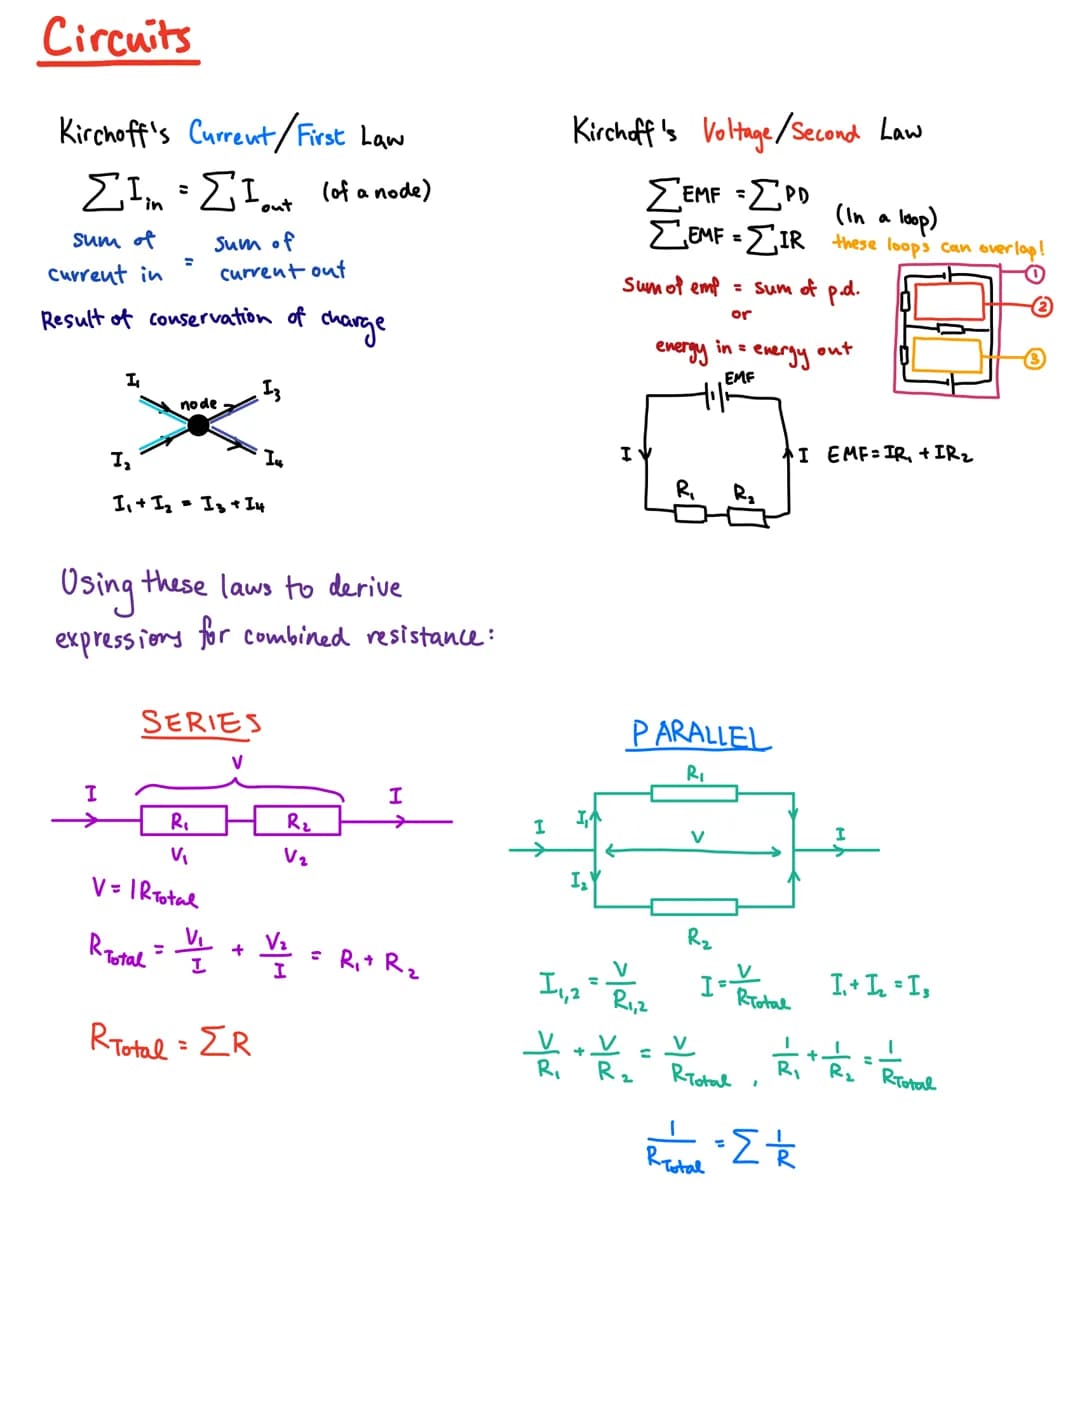 Circuits
Kirchoff's Current/First Law
ΣI_in = ΣI_out (of a node)
sum of current in = sum of current out
Result of conservation of charge
I₁
I₃
node
I₂
I₄
I₁ + I₂ = I₃ + I₄
Kirchoff's Voltage/Second Law
ΣEMF = ΣPD
ΣEMF = ΣIR
(In a loop)
these loops can overlap!
Sum of emf = sum of p.d.
or
energy in = energy out
①
②
③
EMF
I
I
EMF = IR₁ + IR₂
R₁
R₂
Using these laws to derive
expressions for combined resistance:
SERIES
V
I
I
R₁
R₂
V₁
V₂
V = IR_Total
R_Total = V₁/I + V₂/I = R₁ + R₂
R_Total = ΣR
PARALLEL
R₁
I
I₁
V
I
I₂
R₂
I₁,₂ = V/R₁,₂
I = V/R_Total
I₁ + I₂ = I₃
V/R₁ + V/R₂ = V/R_Total , 1/R₁ + 1/R₂ = 1/R_Total
1/R_Total = Σ 1/R